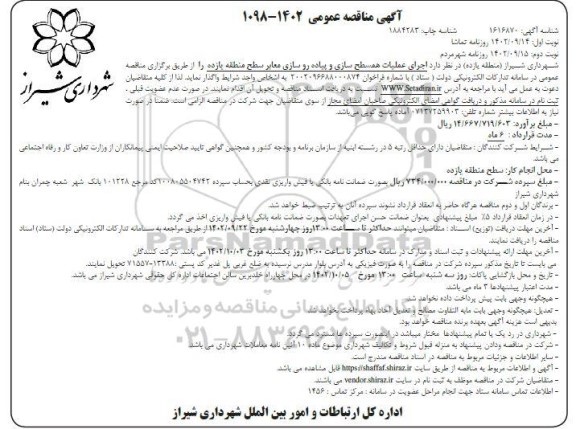 آگهی مناقصه عمومی ۱۴۰۲-۱۰۹۸
شهرداری شیراز
شناسه آگهی: ۱۶۱۶۸۷۰ شناسه چاپ: ۱۸۸۴۲۸۳
نوبت اول: ۱۴۰۲/۰۹/۱۴ روزنامه تماشا
نوبت دوم: ۱۴۰۲/۰۹/۱۵ روزنامه شهرمردم
شهرداری شیراز (منطقه یازده) در نظر دارد اجرای عملیات همسطح سازی و پیاده رو سازی معابر سطح منطقه یازده را از طریق برگزاری مناقصه
عمومی در سامانه تدارکات الکترونیکی دولت ( ستاد ) با شماره فراخوان ۲۰۰۲۰۹۶۶۸۸۰۰۰۸۷۴ به اشخاص واجد شرایط واگذار نماید. لذا از کلیه متقاضیان
دعوت به عمل می آید با مراجعه به آدرس www.Setadiran.ir نسبت به دریافت اسناد مناقصه و تحویل آن اقدام نمایند. در صورت عدم عضویت قبلی،
ثبت نام در سامانه مذکور و دریافت گواهی امضای الکترونیکی صاحبان امضای مجاز از سوی متقاضیان جهت شرکت در مناقصه الزامی است. ضمنا در صورت
نیاز به اطلاعات بیشتر شماره تلفن: ۰۷۱۳۷۲۵۹۹۰۳ آماده پاسخ گویی می‌باشد.
- مبلغ برآورد: ۱۴/۶۶۷/۷۱۹/۶۰۳ ریال
- مدت قرارداد : ۶ ماه
- شرایط شرکت کنندگان : متقاضیان دارای حداقل رتبه ۵ در رشته ابنیه از سازمان برنامه و بودجه کشور و همچنین گواهی تایید صلاحیت ایمنی پیمانکاران از وزارت تعاون کار و رفاه اجتماعی
می باشد.
- محل انجام کار: سطح منطقه یازده
- مبلغ سپرده شرکت در مناقصه ۷۳۴/۰۰۰/۰۰۰ ریال بصورت ضمانت نامه بانکی یا فیش واریزی نقدی بحساب سپرده ۱۰۰۸۰۵۵۰۴۷۴۲ کد مرجع ۱۰۱۳۲۸ بانک شهر شعبه چمران بنام
شهرداری شیراز
- برندگان اول و دوم مناقصه هرگاه حاضر به انعقاد قرارداد نشوند سپرده آنان به ترتیب ضبط خواهد شد.
- در زمان انعقاد قرارداد ۵٪ مبلغ پیشنهادی بعنوان ضمانت حسن اجرای تعهدات بصورت ضمانت نامه بانکی یا فیش واریزی اخذ می گردد.
- آخرین مهلت دریافت (توزیع) اسناد : متقاضیان میتوانند حداکثر تا ساعت ۱۳:۰۰ روز چهارشنبه مورخ ۱۴۰۲/۰۹/۲۲ از طریق مراجعه به سامانه تدارکات الکترونیکی دولت (ستاد) اسناد
مناقصه را دریافت نمایند.
- آخرین مهلت ارائه پیشنهادات و ثبت اسناد و مدارک در سامانه حداکثر تا ساعت ۱۳:۰۰ روز یکشنبه مورخ ۱۴۰۲/۱۰/۰۳ می باشد. شرکت کنندگان
می بایست تا تاریخ مذکور سپرده شرکت در مناقصه را به صورت فیزیکی به آدرس بلوار مدرس نرسیده به پل غدیر کد پستی ۱۳۳۸۸-۷۱۵۵۷ تحویل نمایند.
- تاریخ و محل بازگشایی پاکات: روز سه شنبه ساعت ۱۳:۰۰ مورخ ۱۴۰۲/۱۰/۰۵ در محل چهارراه خلدبرین سالن اجتماعات اداره کل حقوقی شهرداری شیراز می باشد.
- مدت اعتبار پیشنهادها ۳ ماه می باشد.
- هیچگونه وجهی بابت پیش پرداخت داده نخواهد شد.
- تعدیل: هیچگونه وجهی بابت مابه التفاوت مصالح و تعدیل آحاد بهاء پرداخت نخواهد شد.
بدیهی است هزینه آگهی بعهده برنده مناقصه خواهد بود.
- شهرداری در رد یک یا تمام پیشنهادها مختار میباشد در اینصورت سپرده ها مسترد می گردد.
- شرکت در مناقصه ودادن پیشنهاد به منزله قبول شروط و تکالیف شهرداری موضوع ماده ۱۰ آئین نامه معاملات شهرداری می باشد.
- سایر اطلاعات و جزئیات مربوط به مناقصه در اسناد مناقصه مندرج است.
- آگهی و اطلاعات مربوط به مناقصه از طریق سایت https://shaffaf.shiraz.ir قابل مشاهده می باشد.
- متقاضیان شرکت در مناقصه موظف به ثبت نام در سایت vendor.shiraz.ir می باشند.
- اطلاعات تماس سامانه ستاد جهت انجام مراحل عضویت در سامانه : مرکز تماس : ۱۴۵۶
اداره کل ارتباطات و امور بین الملل شهرداری شیراز
ParsNamadData
پایگاه اطلاع رسانی مناقصه و مزایده